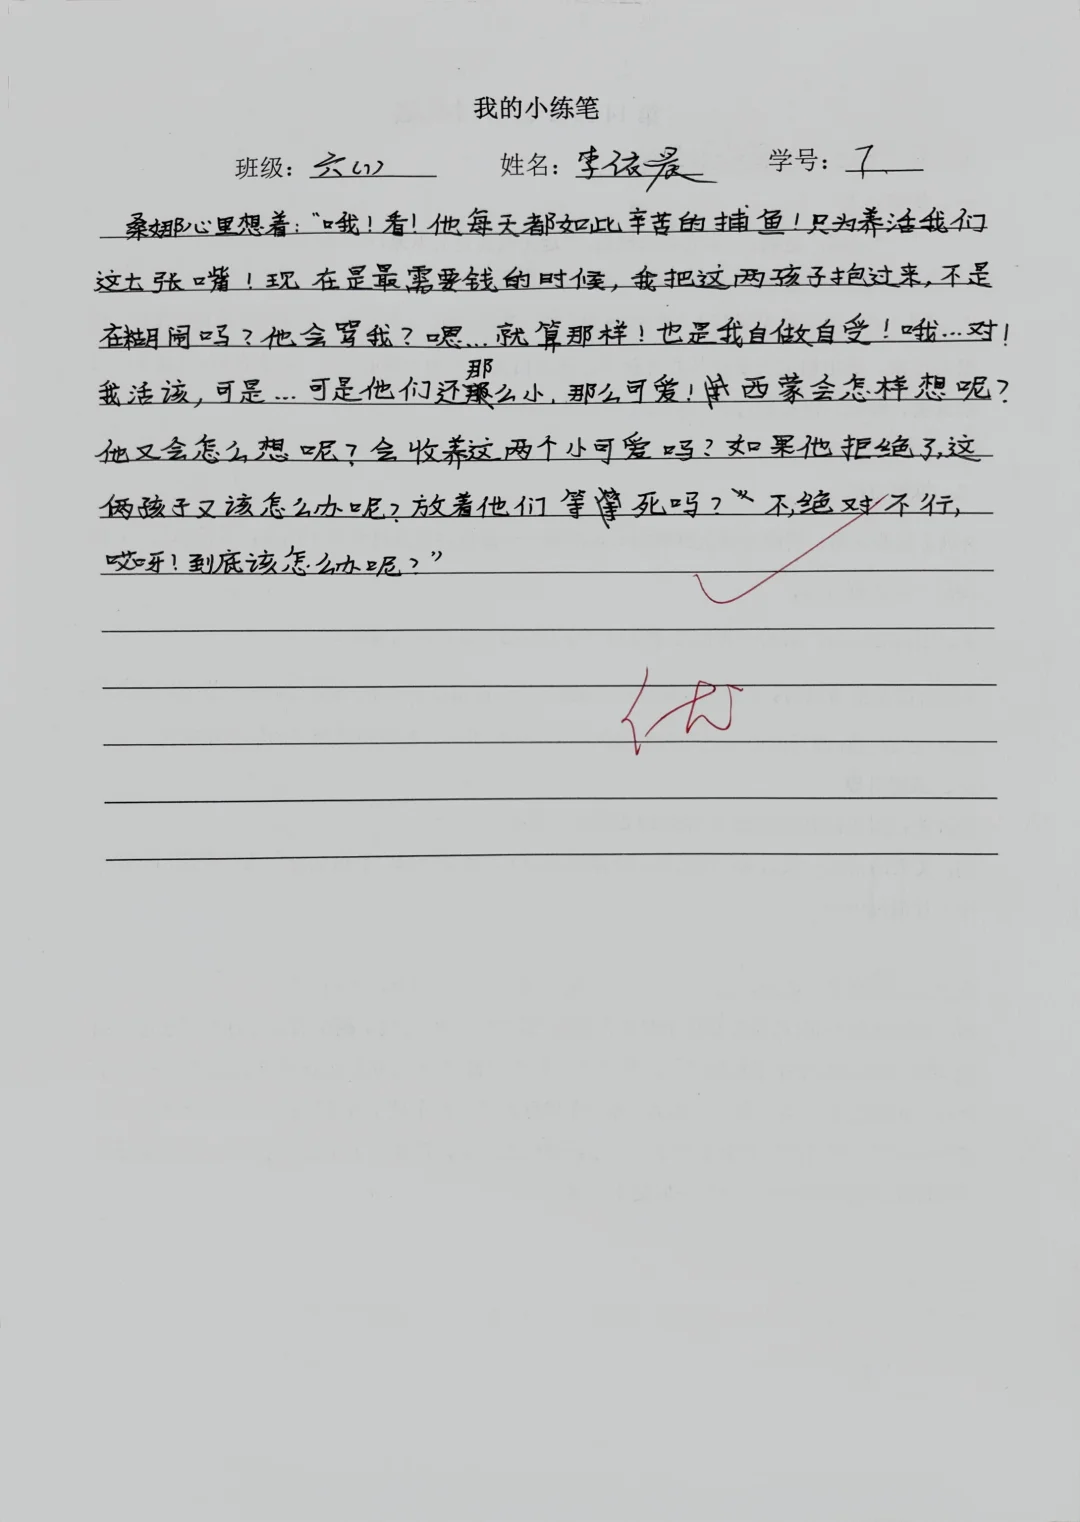 我的小练笔
班级：六（1） 姓名：李依晨 学号：7
桑娜心里想着：“哦！看！他每天都如此辛苦的捕鱼！只为养活我们
这七张嘴！现在是最需要钱的时候，我把这两孩子抱过来，不是
在糊闹吗？他会骂我？嗯…就算那样！也是我自做自受！哦…对！
我活该，可是…可是他们还那么小，那么可爱！西蒙会怎样想呢？
他又会怎么想呢？会收养这两个小可爱吗？如果他拒绝了，这
俩孩子又该怎么办呢？放着他们等死吗？不，绝对不行，
哎呀！到底该怎么办呢？”
优